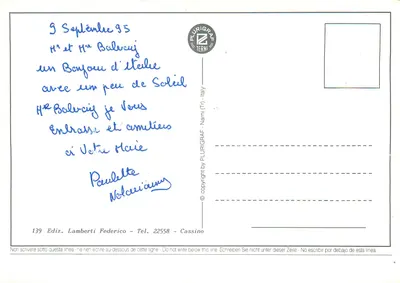 9 Septembre 95
Mr et Mme Balvay
un Bonjour d'Italie
avec un peu de Soleil
Mme Balvay je Vous
Embrasse et amitiés
à Votre Marie
Paulette
PLURIGRAF
TERNI
© copyright by PLURIGRAF - Narni (TR) - Italy
139 Ediz. Lamberti Federico - Tel. 22558 - Cassino
Non scrivere sotto questa linea - Ne rien écrire au-dessous de cette ligne - Do not write below this line - Schreiben Sie nicht unter dieser Zeile - No escribir por debajo de esta línea